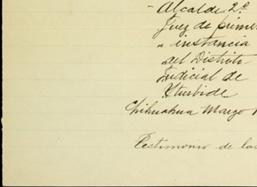 - Alcalde 2º
Juez de prime
a instancia
del Distrito
Judicial de
Iturbide
Chihuahua Marzo
Testimonio de la